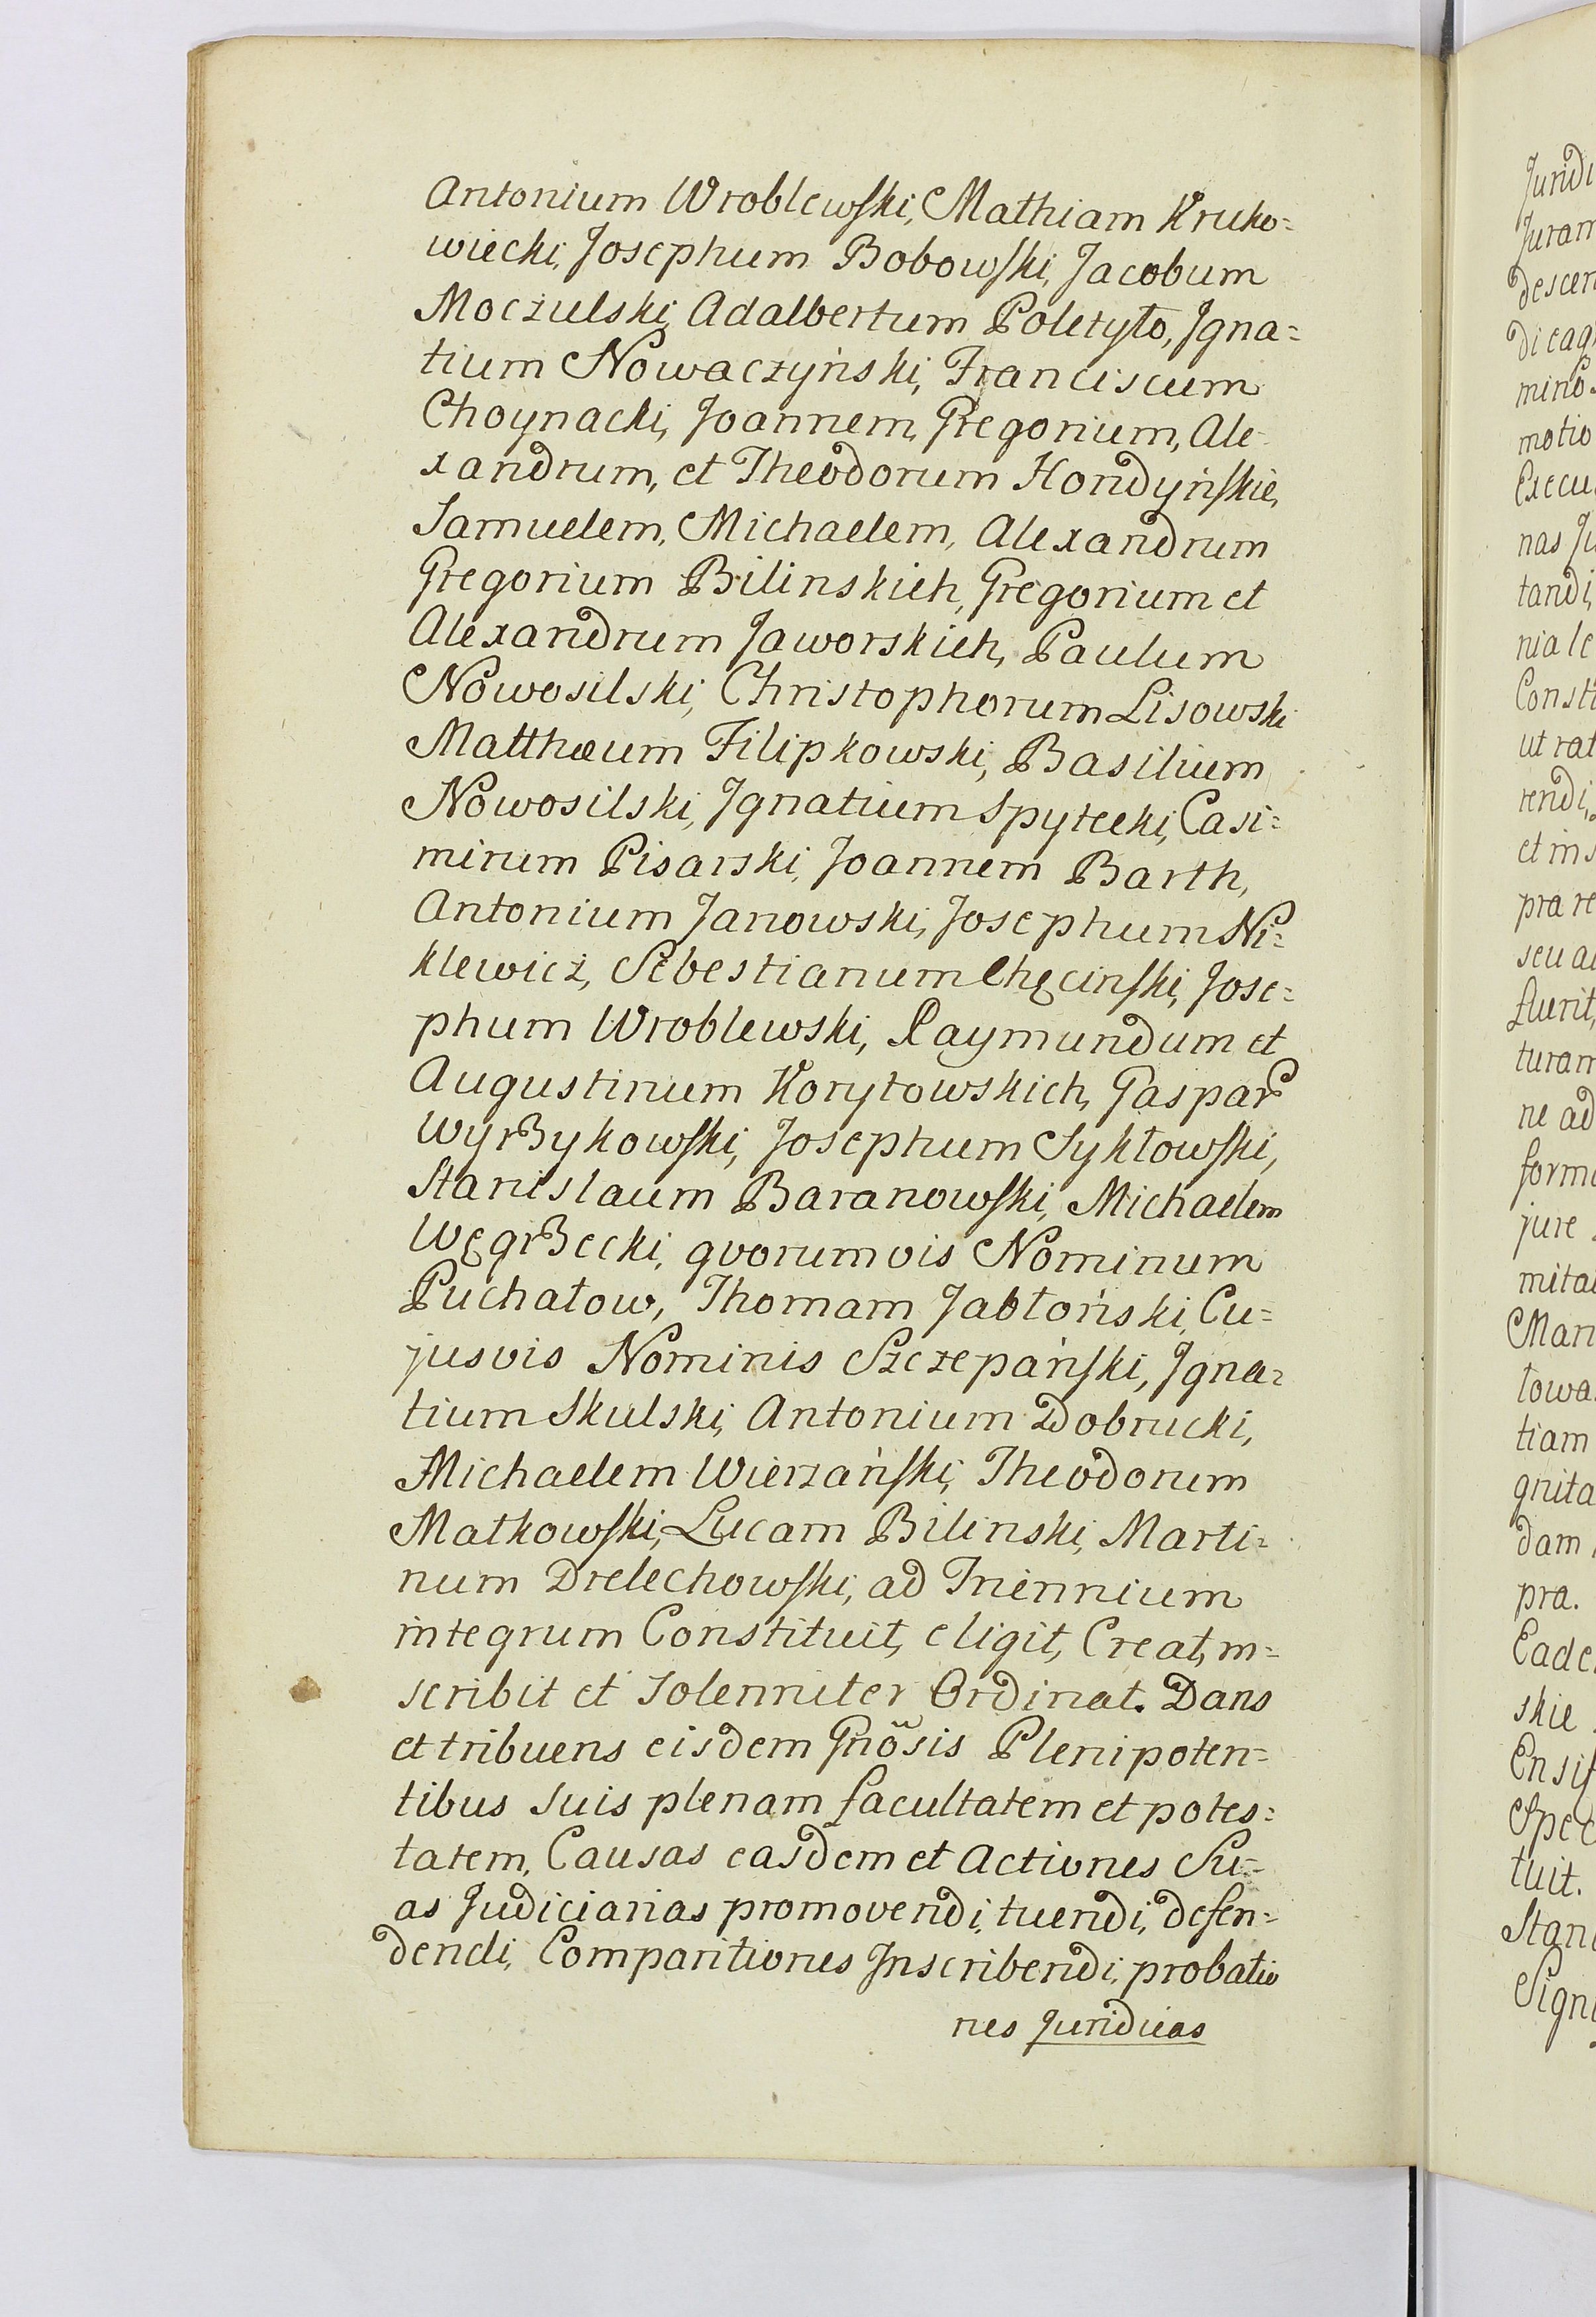 Antonium Wroblewski, Mathiam Kruko=
wiecki, Josephum Bobowski, Jacobum
Moczulski, Adalbertum Poletyło, Igna=
tium Nowaczyński, Franciscum
Choynacki, Joannem, Gregorium, Ale-
xandrum, et Theodorum Hondyńskie,
Samuelem, Michaelem, Alexandrum
Gregorium Bilinskich, Gregorium et
Alexandrum Jaworskich, Paulum
Nowosilski, Christophorum Lisowski
Matthæum Filipkowski, Basilium
Nowosilski, Ignatium Spytecki, Casi=
mirum Pisarski, Joannem Barth,
Antonium Janowski, Josephum Ni=
klewicz, Sebestianum Chęcinski, Jose=
phum Wroblewski, Raymundum et
Augustinum Korytowskich, Gaspar
Wyrzykowski, Josephum Sykłowski,
Stanislaum Baranowski, Michaelem
Węgrzecki, qvorumvis Nominum
Puchałow, Thomam Jabłoński, Cu=
jusvis Nominis Szczepański, Igna=
tium Skulski, Antonium Dobrucki,
Michaelem Wierzański, Theodorum
Matkowski, Lucam Bilinski, Marti=
num Drelechowski, ad Triennium
integrum Constituit, eligit, Creat, in=
scribit et solenniter Ordinat. Dans
et tribuens eisdem Gnõsis Plenipoten=
tibus suis plenam facultatem et potes=
tatem, Causas easdem et Actiones Su=
as Judiciarias promovendi, tuendi, defen=
dendi, Comparitiones Inscribendi, probatio
nes Juridicas